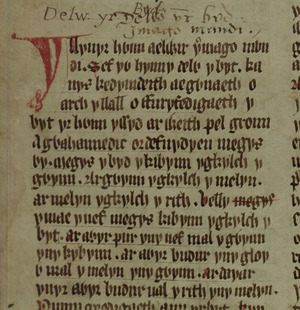 Delw yr Byd
ymago mundi.
Yllyuyr hỽnn aelwir ymago mun
di. Sef yỽ hynny delỽ y byt. ka
nys kedymdeith aegỽnaeth o
arch y llall o ffuryfedigaeth y
byt yr hỽnn yssyd ar weith pel gronn
Agỽahannedic o defnydyeu megys
ỽy. Megys y byd y kibynn ygkylch y
gỽynn. Ar gỽynn ygkylch y melyn.
ar melyn ygkylch y rith. Velly megys
y mae y nef megys kibynn ygkylch y
byt. ar aỽyr pur yny nef mal y gỽynn
yny kybynn. ar aỽyr budur yny gloy
ỽ ual y melyn yny gỽynn. ar dayar
ynyr aỽyr budur ual y rith yny melyn.